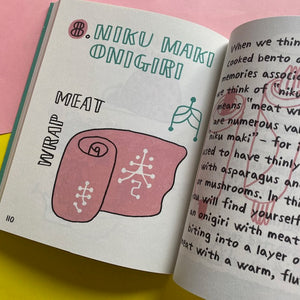 8. NIKU MAKI
ONIGIRI
MEAT
WRAP
110
When we thin
cooked bento
memories associ
we think of "nik
means "meat w
are numerous va
niku maki" - for
used to have thinly
with asparagus an
or mushrooms. In thi
ou will find yourself
an onigiri with meat
biting into a layer o
eat with a warm, flu